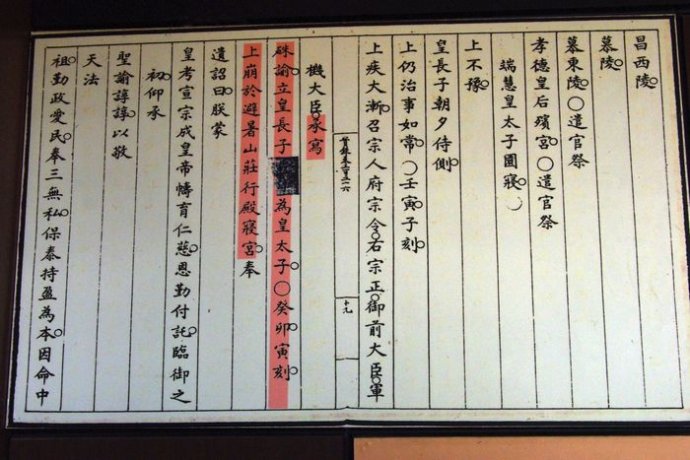 昌西陵。
慕陵。
慕東陵○遣官祭
孝德皇后殯宮。○遣官祭
端慧皇太子園寢。○
上不豫。
皇長子朝夕侍側。
上仍治事如常。○壬寅子刻。
上疾大漸。召宗人府宗令。右宗正。御前大臣。軍
十九
機大臣。承寫
硃諭。立皇長子 為皇太子。○癸卯寅刻。
上崩於避暑山莊行殿寢宮。奉
遺詔曰。朕蒙
皇考宣宗成皇帝幬育仁慈。恩勤付託。臨御之
初。仰承
聖諭諄諄。以敬
天法
祖。勤政愛民。奉三無私。保泰持盈為本。因命中